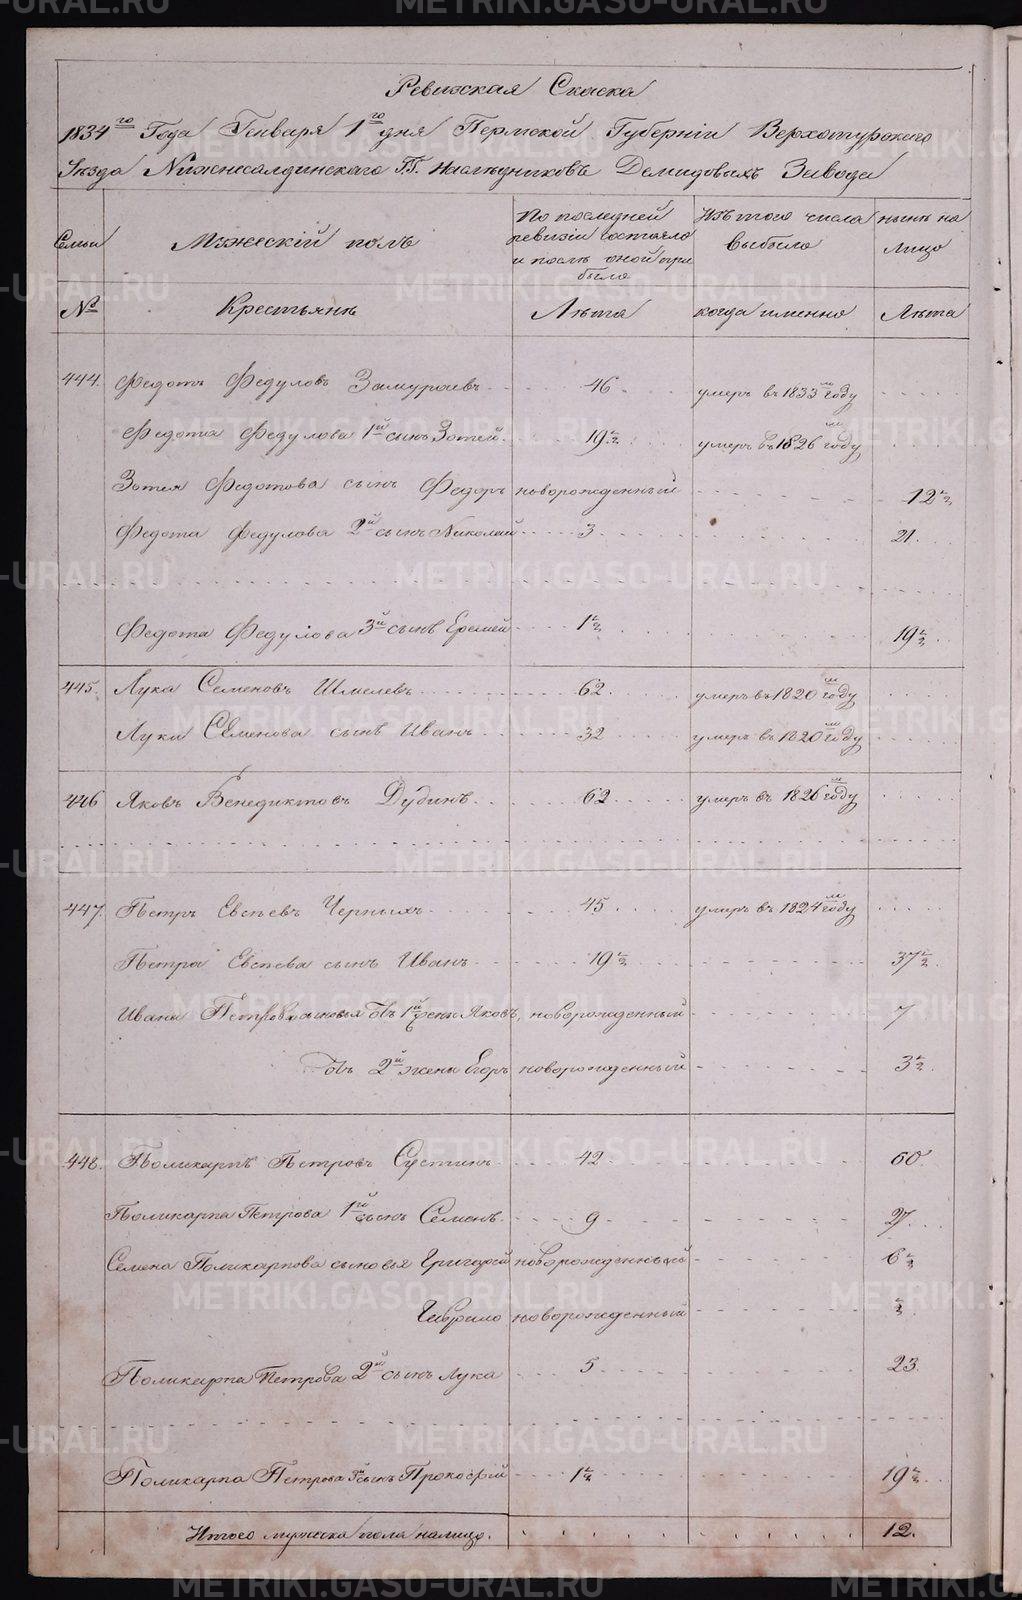 Ревижская Скаска
1834го Года Генваря 1го дня Пермской Губернiи Верхотурскаго
Уѣзда Нижнесалдинскаго Г.Г. Наслѣдниковъ Демидовыхъ Завода
Семьи
Мужескiй полъ
По последней ревизiи состояло и послѣ оной прибыло
Изъ того числа выбыло
нынѣ на лицо
№
Крестьянъ
Лѣта
когда именно
Лѣта
444. Федотъ Федуловъ Замураевъ 46 умеръ въ 1833м году
Федота Федулова 1й сынъ Зотей 19 1/2 умеръ въ 1826м году
Зотея Федотова сынъ Федоръ новорожденный 12 1/2
Федота Федулова 2й сынъ Николай 3 21
Федота Федулова 3й сынъ Еремей 1 1/2 19 1/2
445. Лука Семеновъ Шмелевъ 62 умеръ въ 1820м году
Луки Семенова сынъ Иванъ 32 умеръ въ 1820м году
446 Яковъ Венедиктовъ Дубинъ 62 умеръ въ 1826м году
447. Петръ Евсѣевъ Черныхъ 45 умеръ въ 1824м году
Петра Евсѣева сынъ Иванъ 19 1/2 37 1/2
Ивана Петрова сыновья отъ 1й жены Яковъ, новорожденный 7
отъ 2й жены Егоръ новорожденный 3 1/2
448. Поликарпъ Петровъ Сустинъ 42 60
Поликарпа Петрова 1й сынъ Семенъ 9 27
Семена Поликарпова сыновья Григорей новорожденный 6 1/2
Гаврило новорожденный 1/2
Поликарпа Петрова 2й сынъ Лука 5 23
Поликарпа Петрова 3й сынъ Прокофiй 1 1/2 19 1/2
Итого мужеска пола налицо. 12.
METRIKI.GASO-URAL.RU